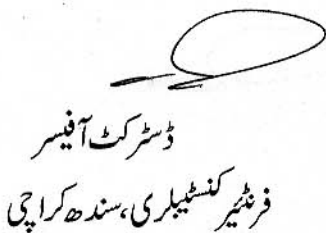 ڈسٹرکٹ آفیسر
فرنٹیر کنسٹیبلری، سندھ کراچی